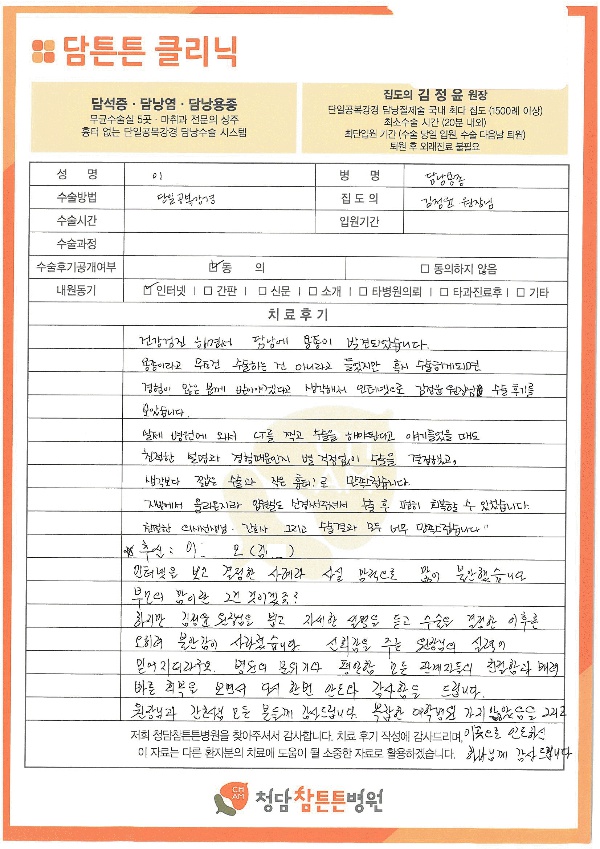 담튼튼 클리닉
담석증 · 담낭염 · 담낭용종
무균수술실 5곳 · 마취과 전문의 상주
흉터 없는 단일공복강경 담낭수술 시스템
집도의 김정윤 원장
단일공복강경 담낭절제술 국내 최다 집도 (1500례 이상)
최소수술 시간 (20분 내외)
최단입원 기간 (수술 당일 입원, 수술 다음날 퇴원)
퇴원 후 외래진료 불필요
성 명 이 병 명 담낭용종
수술방법 단일공복강경 집 도 의 김정윤 원장님
수술시간 입원기간
수술과정
수술후기공개여부 ☑ 동 의 □ 동의하지 않음
내원동기 ☑ 인터넷 | □ 간판 | □ 신문 | □ 소개 | □ 타병원의뢰 | □ 타과진료후 | □ 기타
치 료 후 기
건강검진 하면서 담낭에 용종이 발견되었습니다.
용종이라고 무조건 수술하는 건 아니라고 들었지만 혹시 수술하게되면
경험이 많은 분께 받아야겠다고 생각해서 인터넷으로 김정윤 원장님 수술 후기를
보았습니다.
실제 병원에 와서 CT를 찍고 수술을 해야된다고 얘기들었을 때도
친절한 설명과 경험때문인지 별 걱정없이 수술을 결정하였고,
생각보다 짧은 수술과 작은 흉터로 만족했습니다.
지방에서 올라온지라 입원도 신경써주셔서 수술 후 편히 회복할 수 있었습니다.
친절한 의사선생님 · 간호사 그리고 수술결과 모두 너무 만족드립니다"
※ 추신 : 이 모 (김 )
인터넷을 보고 결정한 사례라 사실 맘적으로 많이 불안했습니다
부모의 맘이란 그런 것이겠죠?
하지만 김정윤 원장님을 뵙고 자세한 설명을 듣고 수술을 결정한 이후론
오히려 불안감이 사라졌습니다 신뢰감을 주는 원장님의 실력이
믿어지더라구요. 병원의 분위기와 편안함 모든 관계자들의 친절함과 배려
빠른 회복을 보면서 다시 한번 안도와 감사함을 드립니다.
원장님과 간호사님 모든 분들께 감사드립니다. 복잡한 대학병원 가지 않았음을 그리고
저희 청담참튼튼병원을 찾아주셔서 감사합니다. 치료 후기 작성에 감사드리며, 이곳으로 인도하신
이 자료는 다른 환자분의 치료에 도움이 될 소중한 자료로 활용하겠습니다. 하나님께 감사드립니다
CHAM 청담참튼튼병원